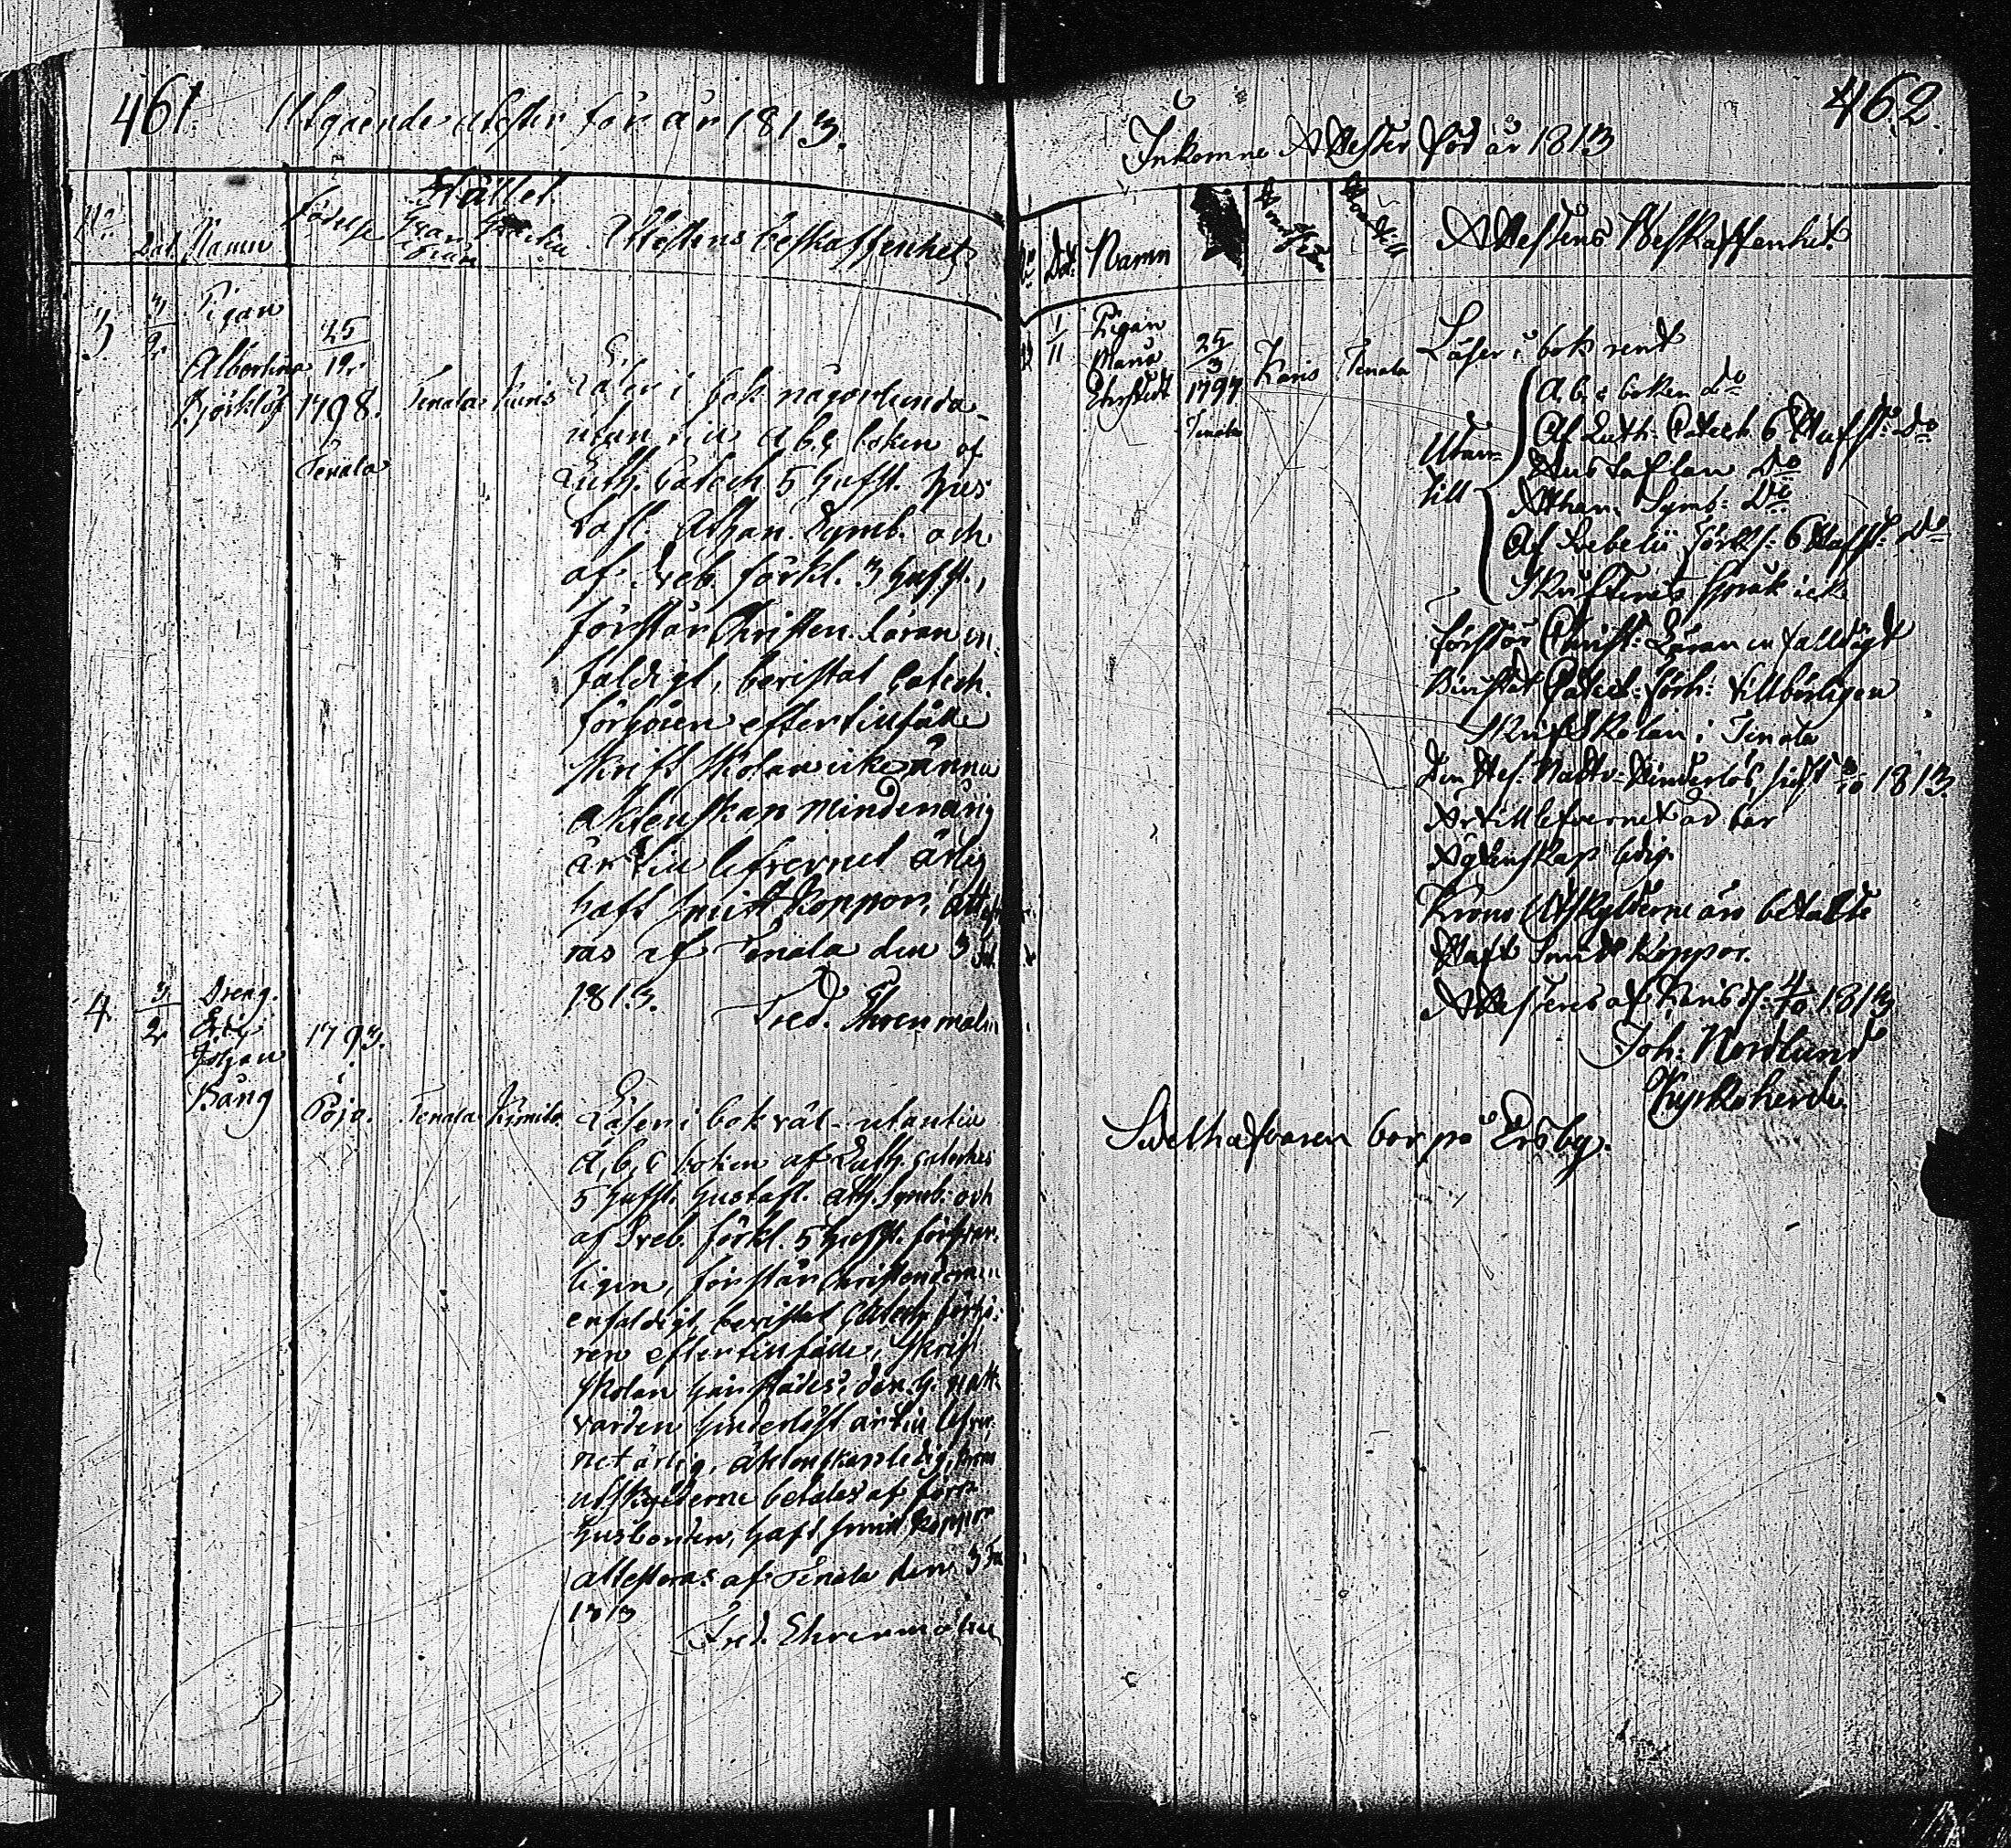 461. Utgående atester för år 1813.
Stället
No. Dat. Namn Födelse hvar ifrån Attestens beskaffenhet.
3 3/2 Pigan
Albertina
Björklöf
25/12
1798.
Tenala
Tenala Karis
Läser i bok någorlunda
utan till a b c boken af
Luth. Catech 5 hufst. hus
tafl. Athan. Symb. och
af Sveb. förkl. 3 hufst.,
förstår Christen. läran en-
faldigt, bevistat Catech.
förhören efter tillfälle
skrift skolan icke ännu
aktenskap minderårig
är till lefvernet ärlig
haft smitt koppor,
ras af Tenala den 3
1813. Fred. Ehrenmalm
4. 3/2 Dreng.
Eric
Johan
Bång
1793.
Pojo. Tenala Kimito
Läser i bok väl - utantill
A, b, c boken af Luth. cateches
5 hufst. hustafl. Ath. Symb. och
af Sveb. förkl. 5 hufst. försvar-
ligen, förstår Christendomen
enfaldigt, bevistat Catech. förhö-
ren efter tillfälle, skrift
skolan härstädes, den h. natt-
varden hinderlöst är till lefver-
net ärlig, äktenskap ledig, kron
utskylderne betales af förra
husbonden, haft smitt koppor
attesteras af Tenala den 3
1813
Fred. Ehrenmalm
462.
Inkomne Attester för år 1813
No Dat: Namn Attestens Beskaffenhet.
1 1/11 Pigan
Maria
Ehrstedt
25/3
1797
Tenala
Karis Tenala
Läser i bok rent
Utan-
till
A. b. c boken do
Af Luth: Catech 6 Hufst: do
Hustaflan Do
Athan: Symb: Do
Af Svebelii förkl: 6 Hufst: do
Skriftenes språk ick
förstår Christ: Läran enfalldigt
Bivistat Catech: förh: tillbörligen
Skriftskolan i Tenala
Den Hel. Nattv: hinderlös, sist 3/10 1813.
Är till lefvernet ärbar
Ägtenskap ledig.
Krono Utskylderne äro betalte
Haft Smitt Koppor.
Attesteras af Karis d. 4/10 1813
Joh: Nordlund
Kyrkoherde.
Swethafvaren bor på Ersby.